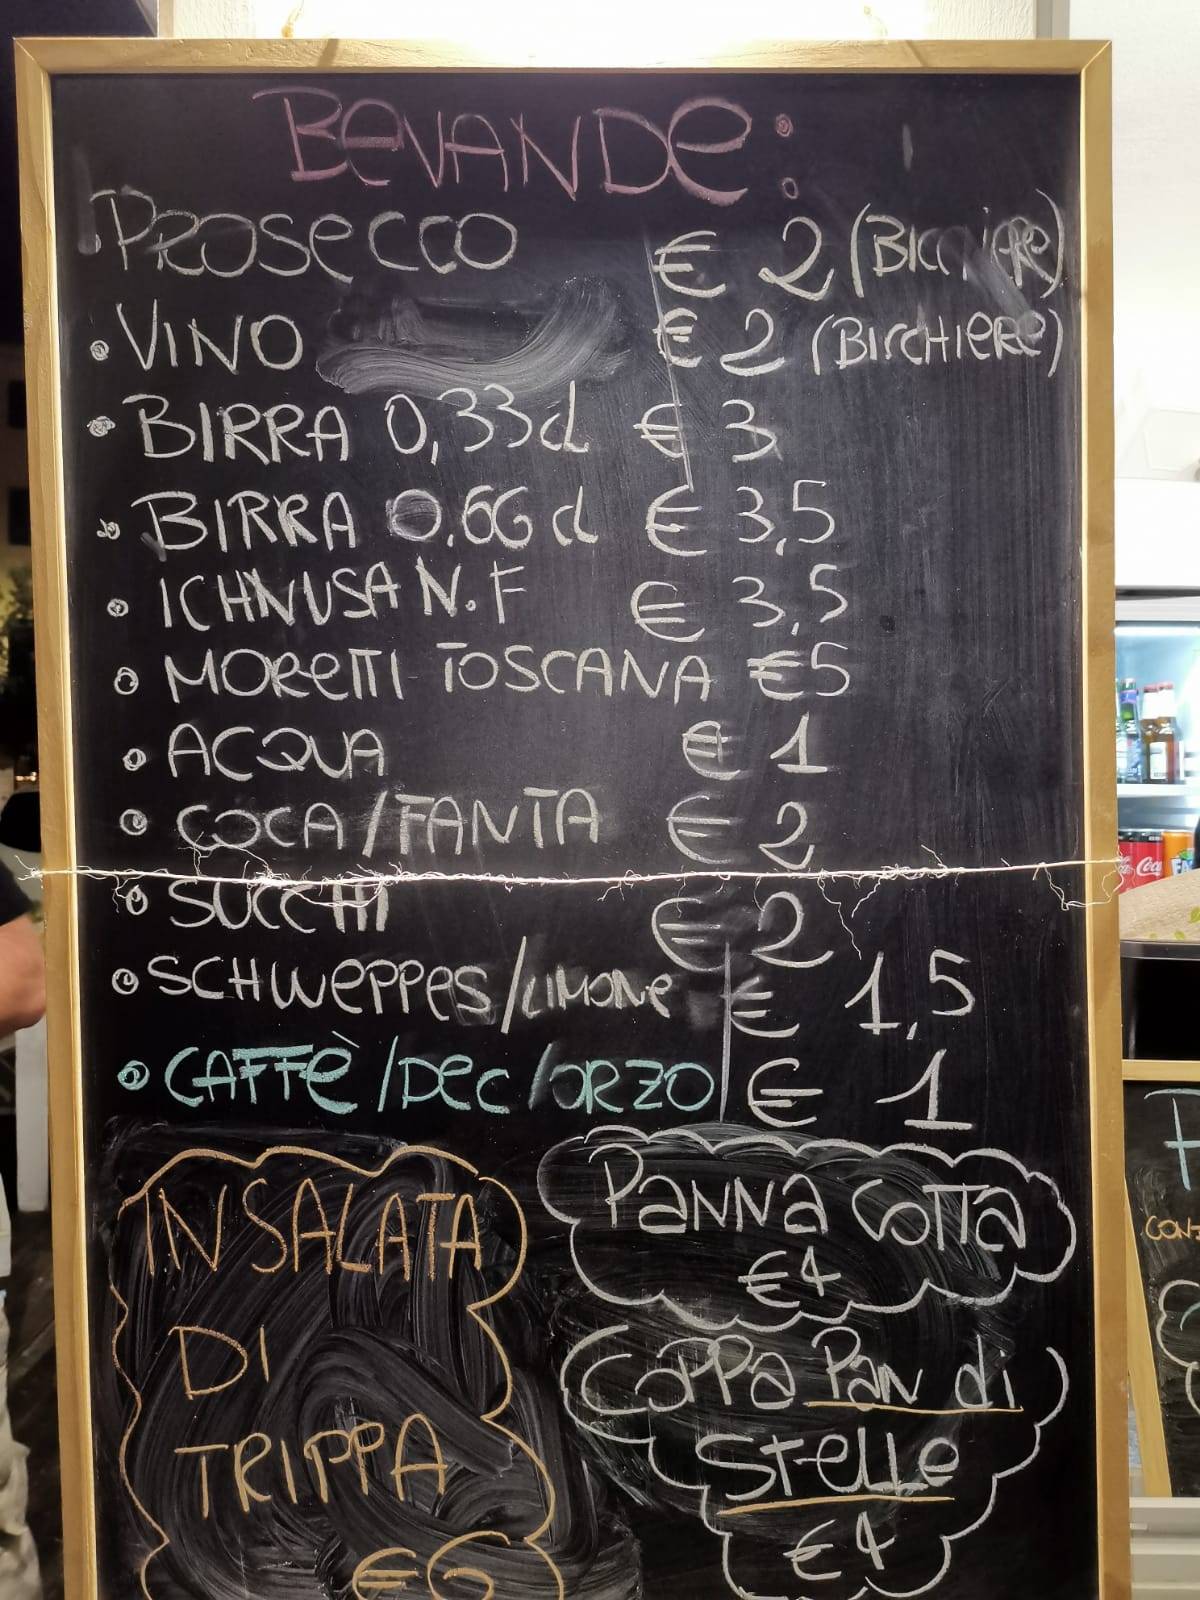 BEVANDE:
PROSECCO € 2 (BICCHIERE)
• VINO € 2 (BICCHIERE)
• BIRRA 0,33 cl € 3
• BIRRA 0.66 cl € 3,5
• ICHNUSA N.F € 3,5
• MORETTI TOSCANA €5
• ACQUA € 1
• COCA/FANTA € 2
• SUCCHI € 2
• SCHWEPPES/LIMONE € 1,5
• CAFFÈ/DEC/ORZO € 1
INSALATA
DI
TRIPPA
€6
PANNA COTTA
€4
COPPA PAN di
STELLE
€4
Coca